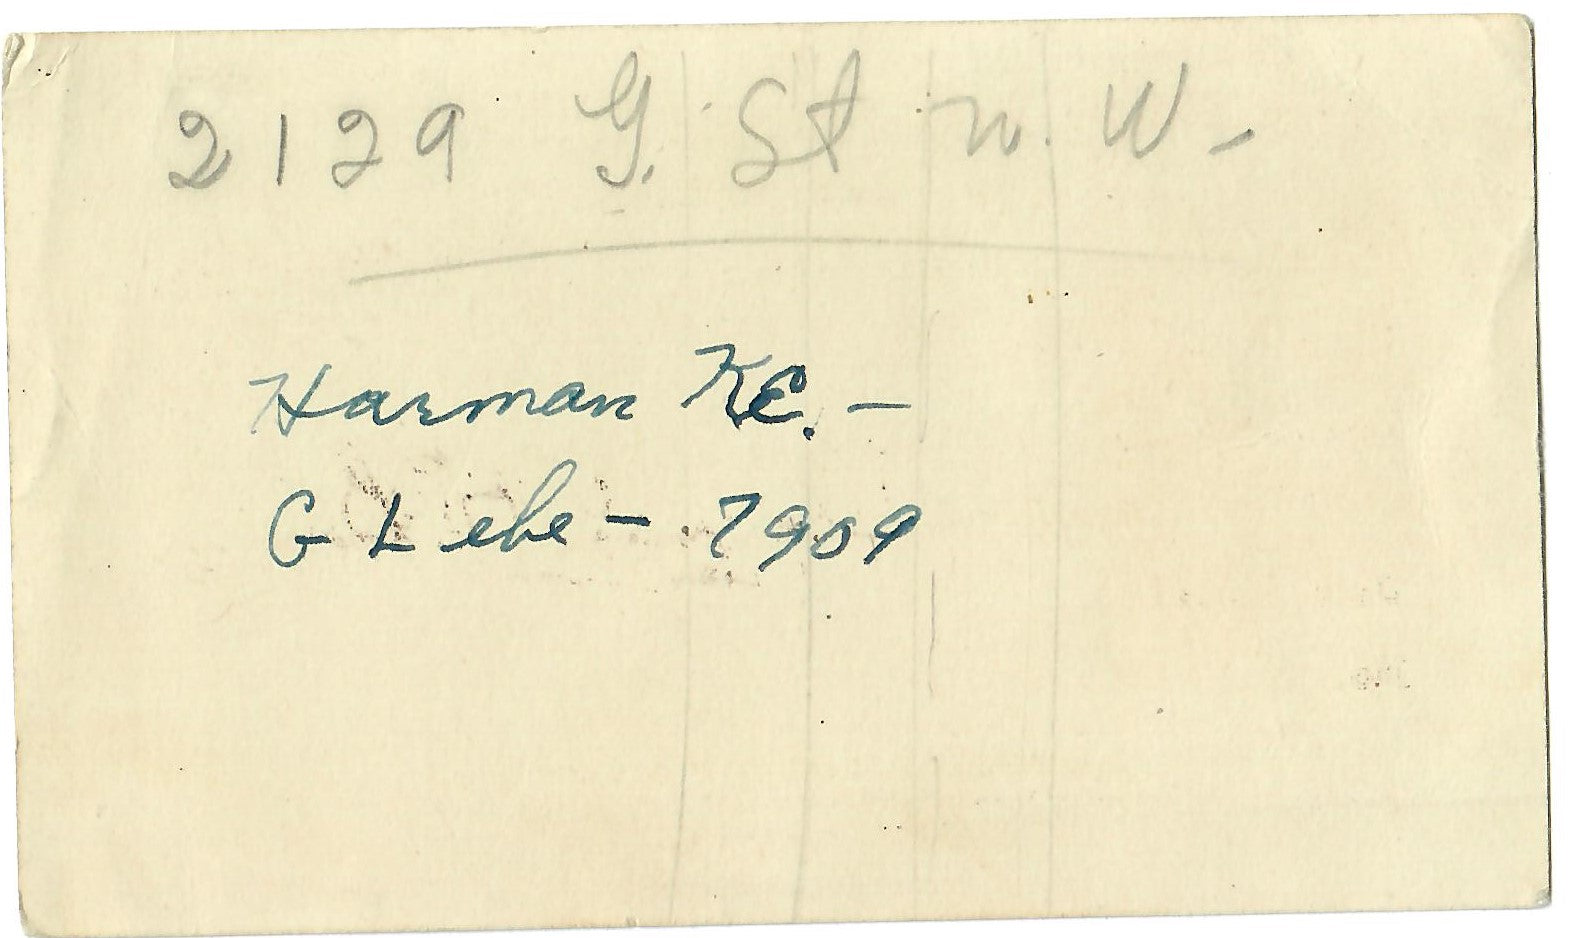 2129 G. St N. W.
Harman KE. -
G Lebe - 7909